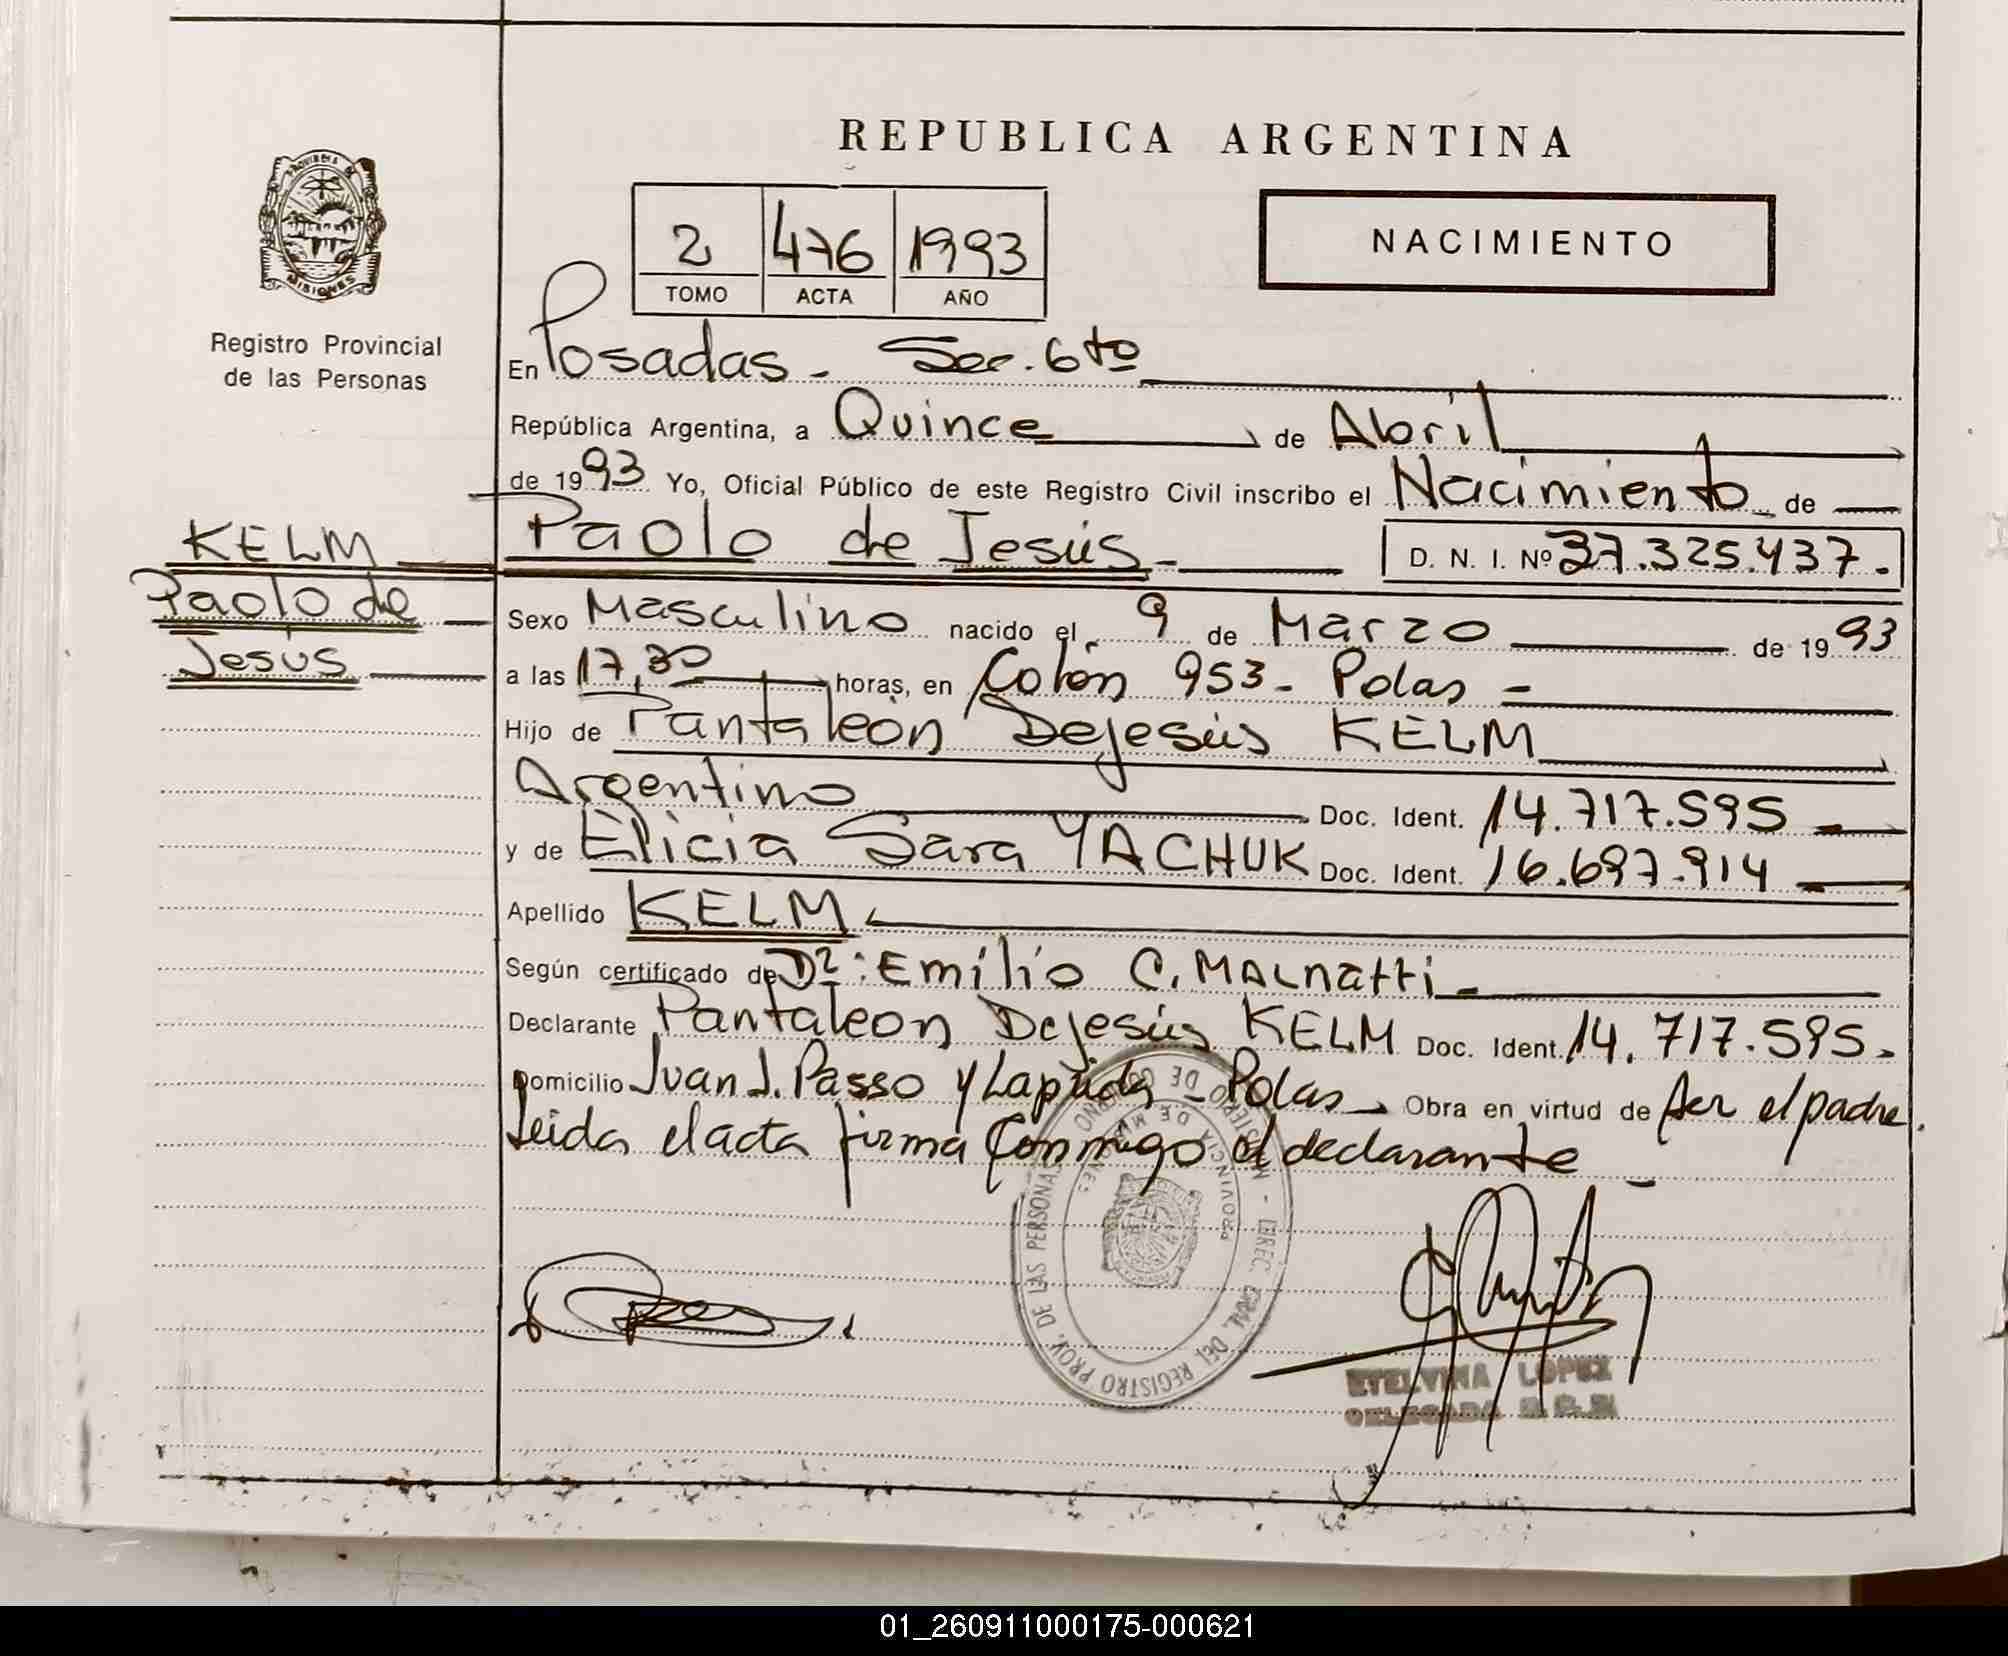 REPUBLICA ARGENTINA
PROVINCIA DE
MISIONES
Registro Provincial
de las Personas
2 476 1993
TOMO ACTA AÑO
NACIMIENTO
En Posadas - Sec. 6to
República Argentina, a Quince de Abril
de 1993 Yo, Oficial Público de este Registro Civil inscribo el Nacimiento de
KELM
Paolo de
Jesús
Paolo de Jesús - D. N. I. Nº 37.325.437.-
Sexo Masculino nacido el 9 de Marzo de 1993
a las 17,30 horas, en Colón 953 - Pdas -
Hijo de Pantaleón Dejesús KELM
Argentino Doc. Ident. 14.717.595 -
y de Elicia Sara YACHUK Doc. Ident. 16.697.914 -
Apellido KELM
Según certificado de Dr: Emilio C. MALnatti -
Declarante Pantaleon Dejesús KELM Doc. Ident. 14.717.595.
Domicilio Juan J. Passo y Laprida - Pdas - Obra en virtud de Ser el padre.
Leida el acta firma Conmigo el declarante -
MINISTERIO DE GOBIERNO - DIREC. GRAL. DEL REGISTRO PROV. DE LAS PERSONAS
PROVINCIA DE MISIONES
ETELVINA LOPEZ
DELEGADA
01_260911000175-000621